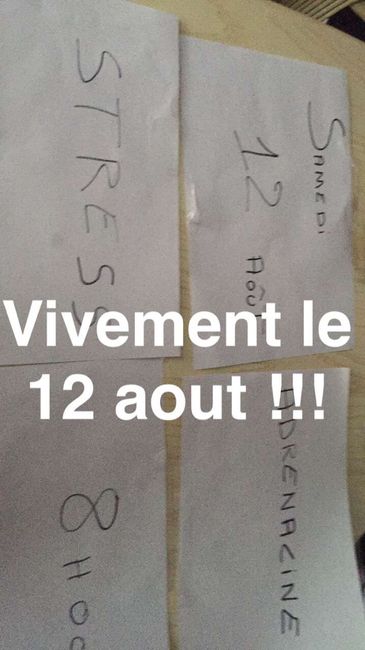 STRESS
SAMEDI
12
AOÛT
Vivement le
12 aout !!!
ADRENALINE
8 HO